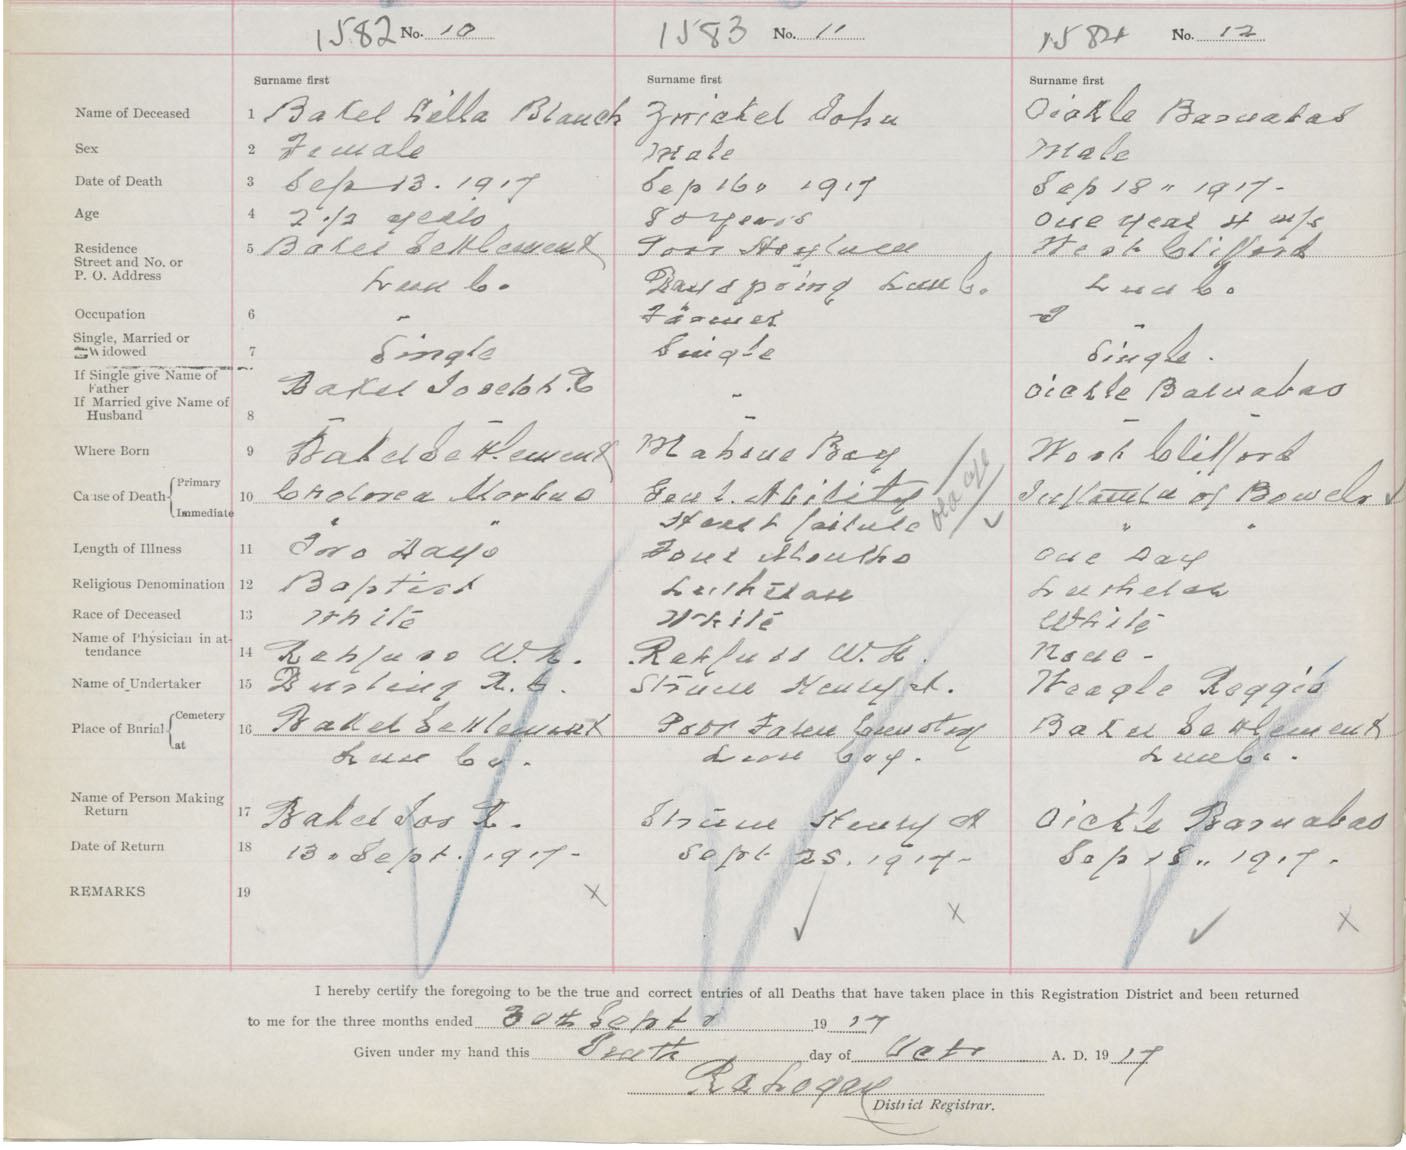 1582 No. 10 1583 No. 11 1584 No. 12
Surname first Surname first Surname first
Name of Deceased 1 Baker Lilla Blanch Zwicker John Oickle Barnabas
Sex 2 Female Male Male
Date of Death 3 Sep 13. 1917 Sep 16" 1917 Sep 18" 1917-
Age 4 2 1/2 years 80 years One year 4 m/s
Residence 5 Baker Settlement Poor Asylum West Clifford
Street and No. or
P. O. Address Lun Co. Dayspring Lun Co. Lun Co.
Occupation 6 " Farmer
Single, Married or
Widowed 7 Single Single Single.
If Single give Name of
Father Baker Joseph R - Oickle Barnabas
If Married give Name of
Husband 8 - - - -
Where Born 9 Baker Settlement Mahone Bay West Clifford
Cause of Death Primary 10 Cholorea Morbus Senl. Ability Inflamtn of Bowels
Immediate " " Heart failure " "
old age
Length of Illness 11 Two Days Four Months One Day
Religious Denomination 12 Baptist Lutheran Lutheran
Race of Deceased 13 White White White
Name of Physician in at-
tendance 14 Rehfuss W. N. Rehfuss W. N. None-
Name of Undertaker 15 Strum Henry A. Weagle Reggie
Place of Burial Cemetery 16 Baker Settlement Poor Farm Cemetery Baker Settlement
at Lun Co. Lun Coy. Lun Co.
Name of Person Making
Return 17 Baker Jos R. Strum Henry A Oickle Barnabas
Date of Return 18 13" Sept. 1917- Sept 25. 1917- Sep 18" 1917-
REMARKS 19 x x x
I hereby certify the foregoing to be the true and correct entries of all Deaths that have taken place in this Registration District and been returned
to me for the three months ended 30th Sept 1917
Given under my hand this Tenth day of Octr A. D. 1917
Logan
District Registrar.